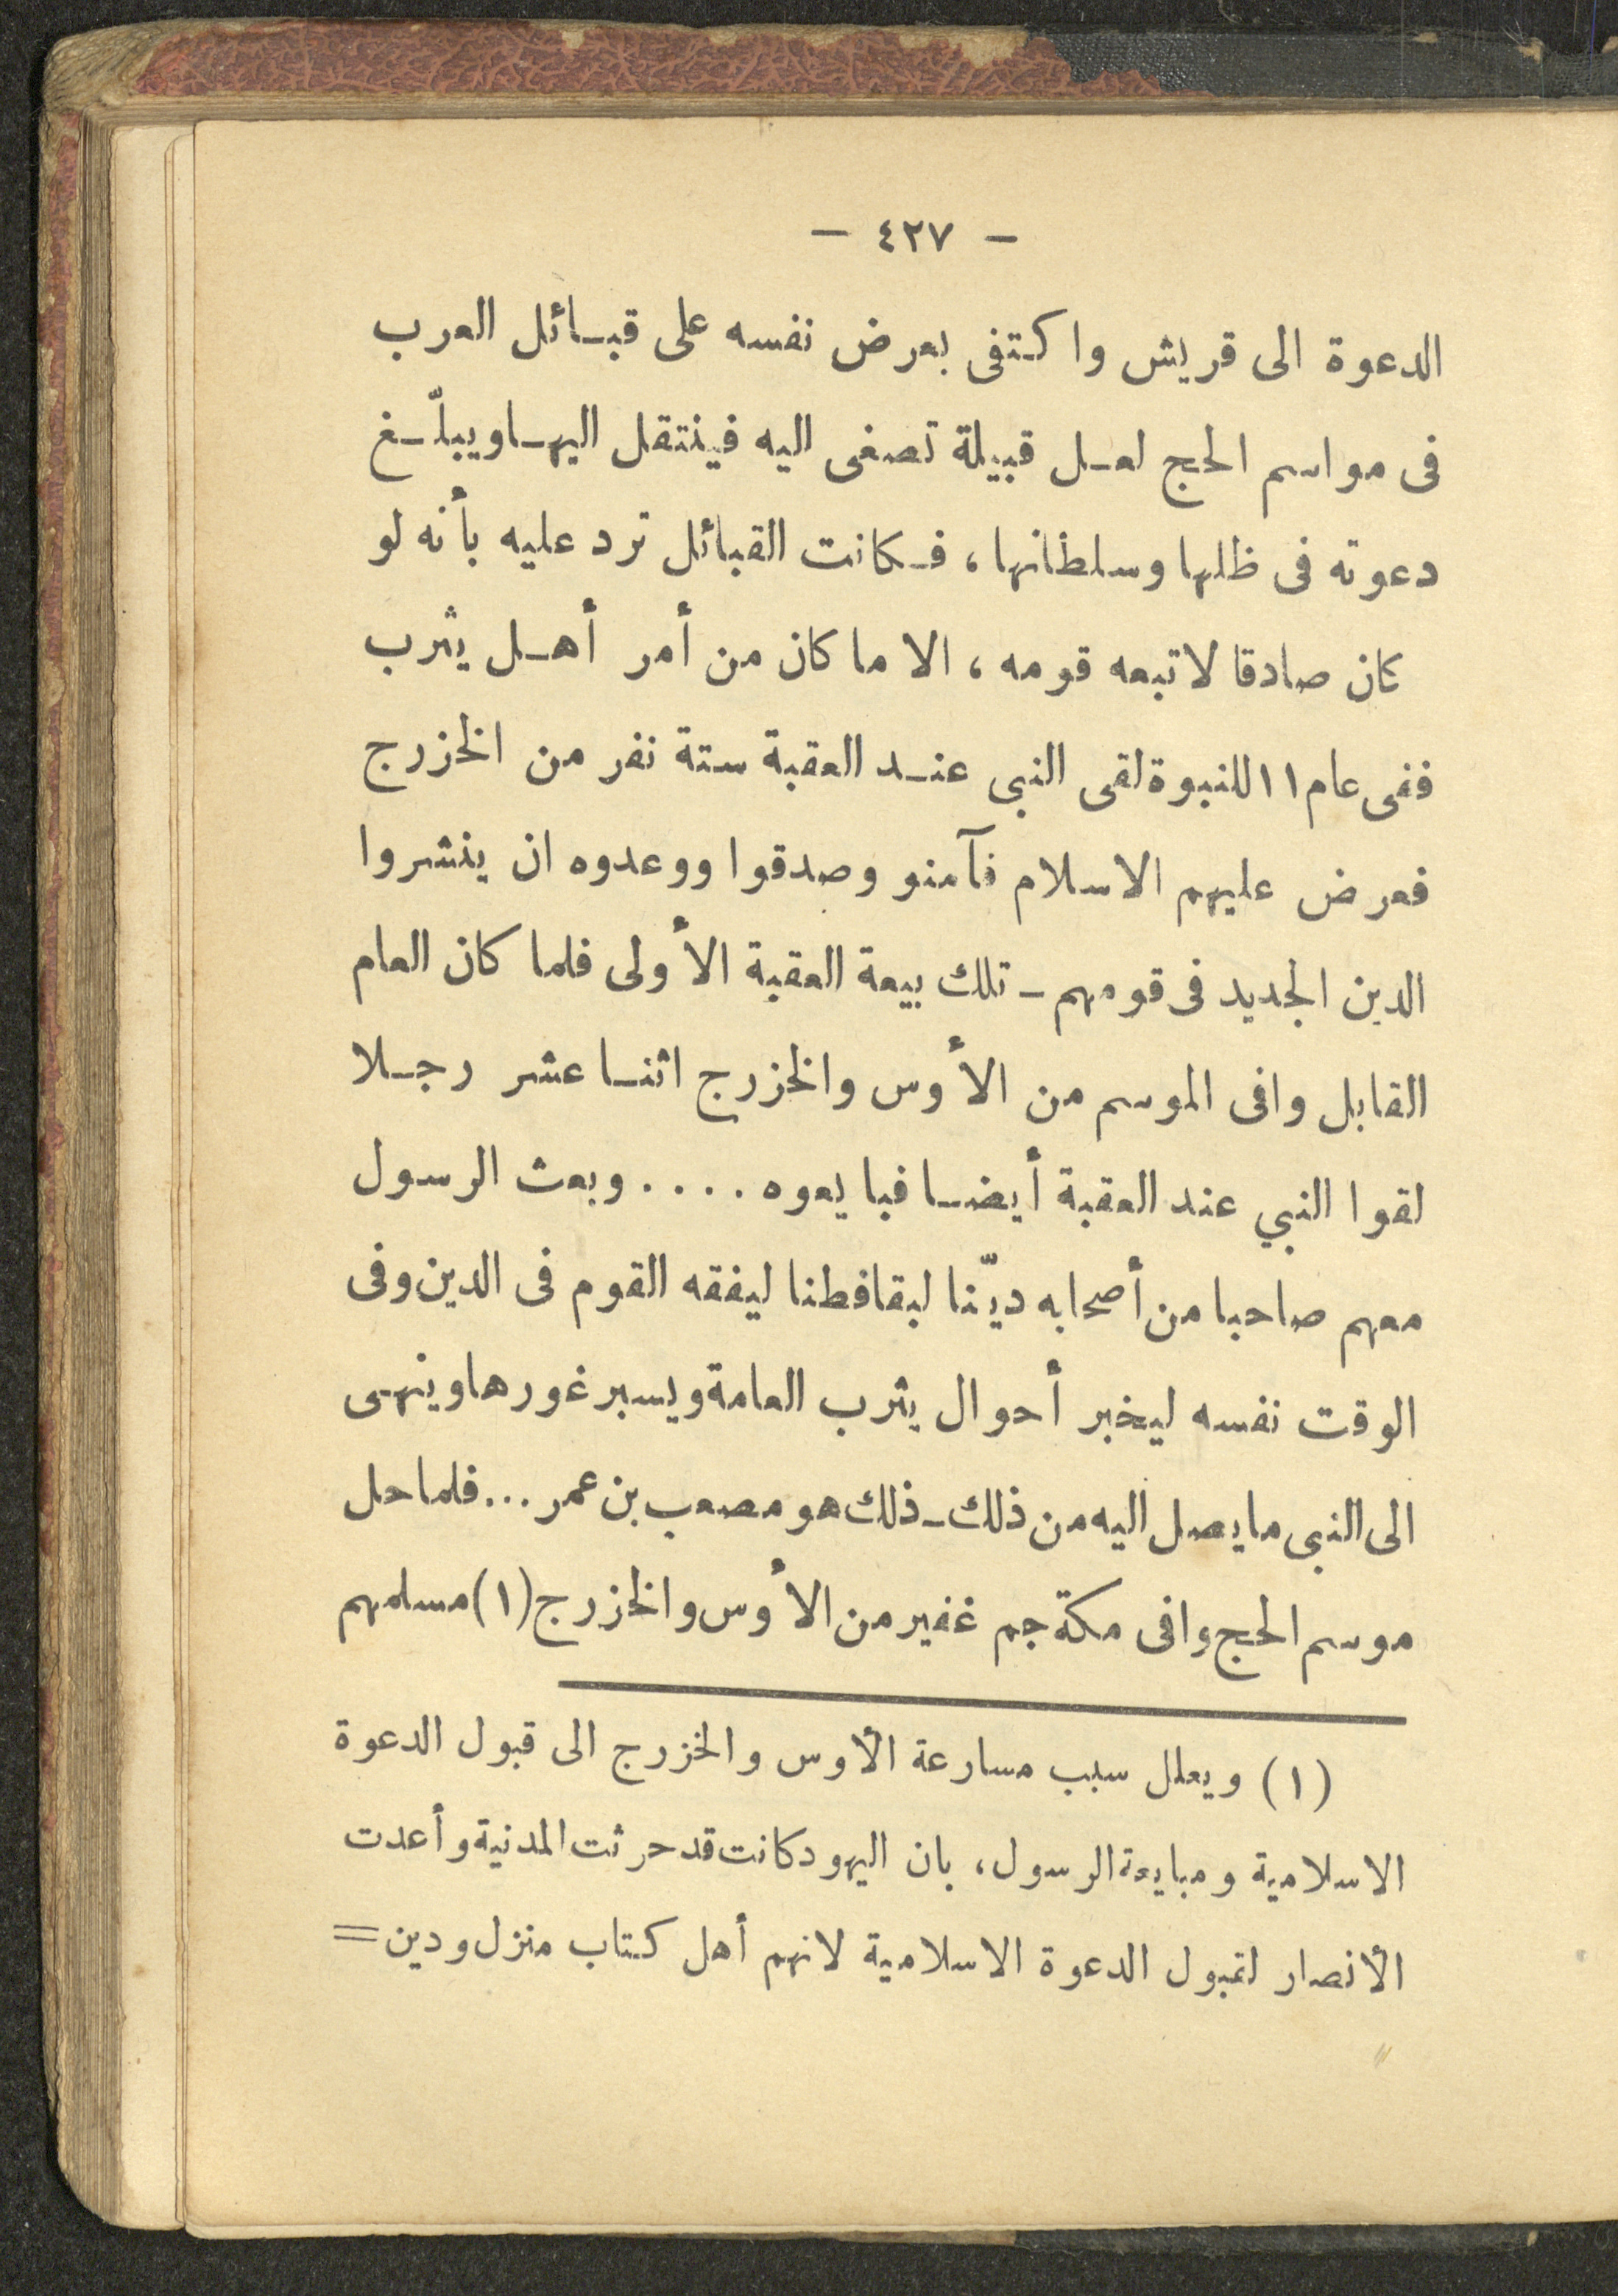 — ٤٢٧ —
الدعوة الى قريش واكتفى بعرض نفسه على قبائل العرب
فى مواسم الحج لعل قبيلة تصغى اليه فينتقل اليها ويبلّغ
دعوته فى ظلها وسلطانها ، فكانت القبائل ترد عليه بأنه لو
كان صادقا لاتبعه قومه ، الا ما كان من أمر أهل يثرب
ففى عام ١١ للنبوة لقى النبى عند العقبة ستة نفر من الخزرج
فعرض عليهم الاسلام فآمنو وصدقوا ووعدوه ان ينشروا
الدين الجديد فى قومهم ـ تلك بيعة العقبة الأولى فلما كان العام
القابل وافى الموسم من الأوس والخزرج اثنا عشر رجلا
لقوا النبي عند العقبة أيضا فبايعوه .... وبعث الرسول
معهم صاحبا من أصحابه ديّنا لبقا فطنا ليفقه القوم فى الدين وفى
الوقت نفسه ليخبر أحوال يثرب العامة ويسبر غورها وينهى
الى النبى ما يصل اليه من ذلك ـ ذلك هو مصعب بن عمر ... فلما حل
موسم الحج وافى مكة جم غفير من الأوس والخزرج (١) مسلمهم
(١) ويعلل سبب مسارعة الأوس والخزرج الى قبول الدعوة
الاسلامية ومبايعة الرسول ، بان اليهود كانت قد حرثت المدنية وأعدت
الأنصار لقبول الدعوة الاسلامية لانهم أهل كتاب منزل ودين =